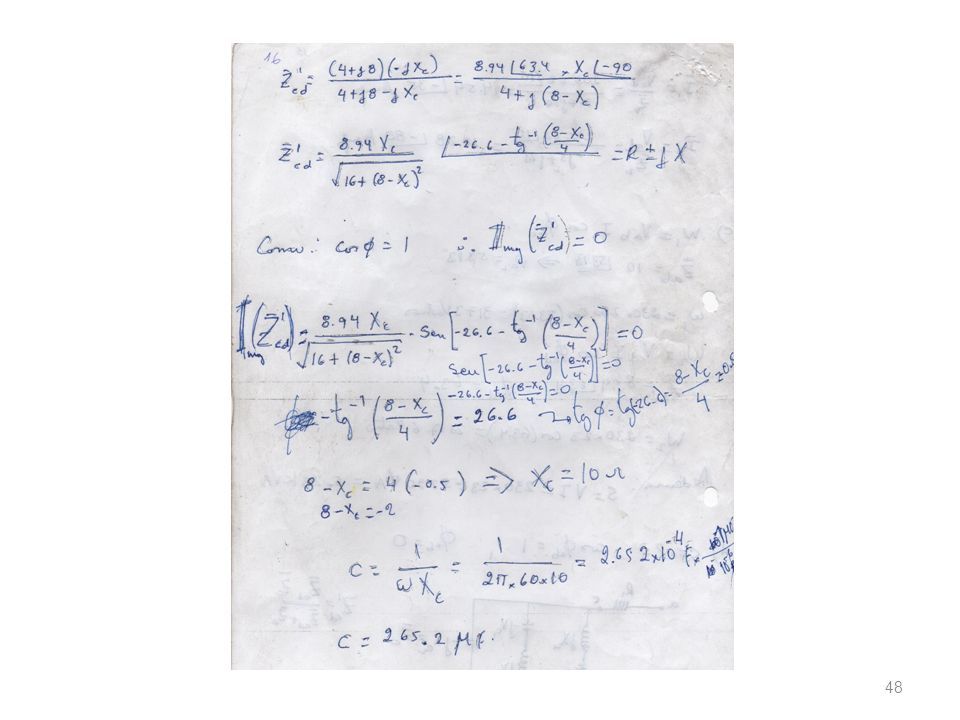 16
Z̄'cd = (4+j8)(-jXc) / 4+j8-jXc = 8.94∠63.4 × Xc∠-90 / 4+j(8-Xc)
Z̄'cd = 8.94 Xc / √16+(8-Xc)² ∠-26.6-tg⁻¹(8-Xc/4) = R ± jX
Como: cos φ = 1 ∴ Img(Z̄'cd) = 0
Img(Z̄'cd) = 8.94 Xc / √16+(8-Xc)² · Sen[-26.6-tg⁻¹(8-Xc/4)] = 0
Sen[-26.6-tg⁻¹(8-Xc/4)] = 0
-26.6-tg⁻¹(8-Xc/4) = 0
-tg⁻¹(8-Xc/4) = 26.6 tg φ = tg(-26.6) = 8-Xc/4
8-Xc = 4(-0.5) => Xc = 10 Ω
8-Xc = -2
C = 1/ωXc = 1/2π×60×10 = 2.652×10⁻⁴ F ×
C = 265.2 μF.
48